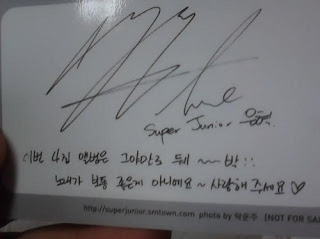 Super Junior 은혁
이번 나집 앨범은 그야말로 대 ~~ 박 !!
노래가 보통 좋은게 아니에요 ~ 사랑해 주세요 ♡
http://superjunior.smtown.com photo by 탁윤주 [NOT FOR SA